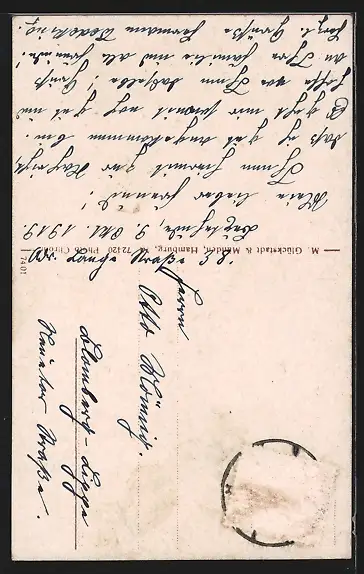 Cuxhafen, 9. Okt. 1919.
Mein lieber Freund!
Ihnen hiermit zur Nachricht
daß ich gut angekommen bin.
Es geht mir soweit noch gut und
hoffe von Ihnen dasselbe! Gruß
an Ihre Familie und alle Freunde!
Herzl. Grüße Hermann
M. Glückstadt & Münden, Hamburg. 72420 Photo Chrom
7401
Herrn
Otto König.
Blomberg-Lippe
Neuetor Straße.